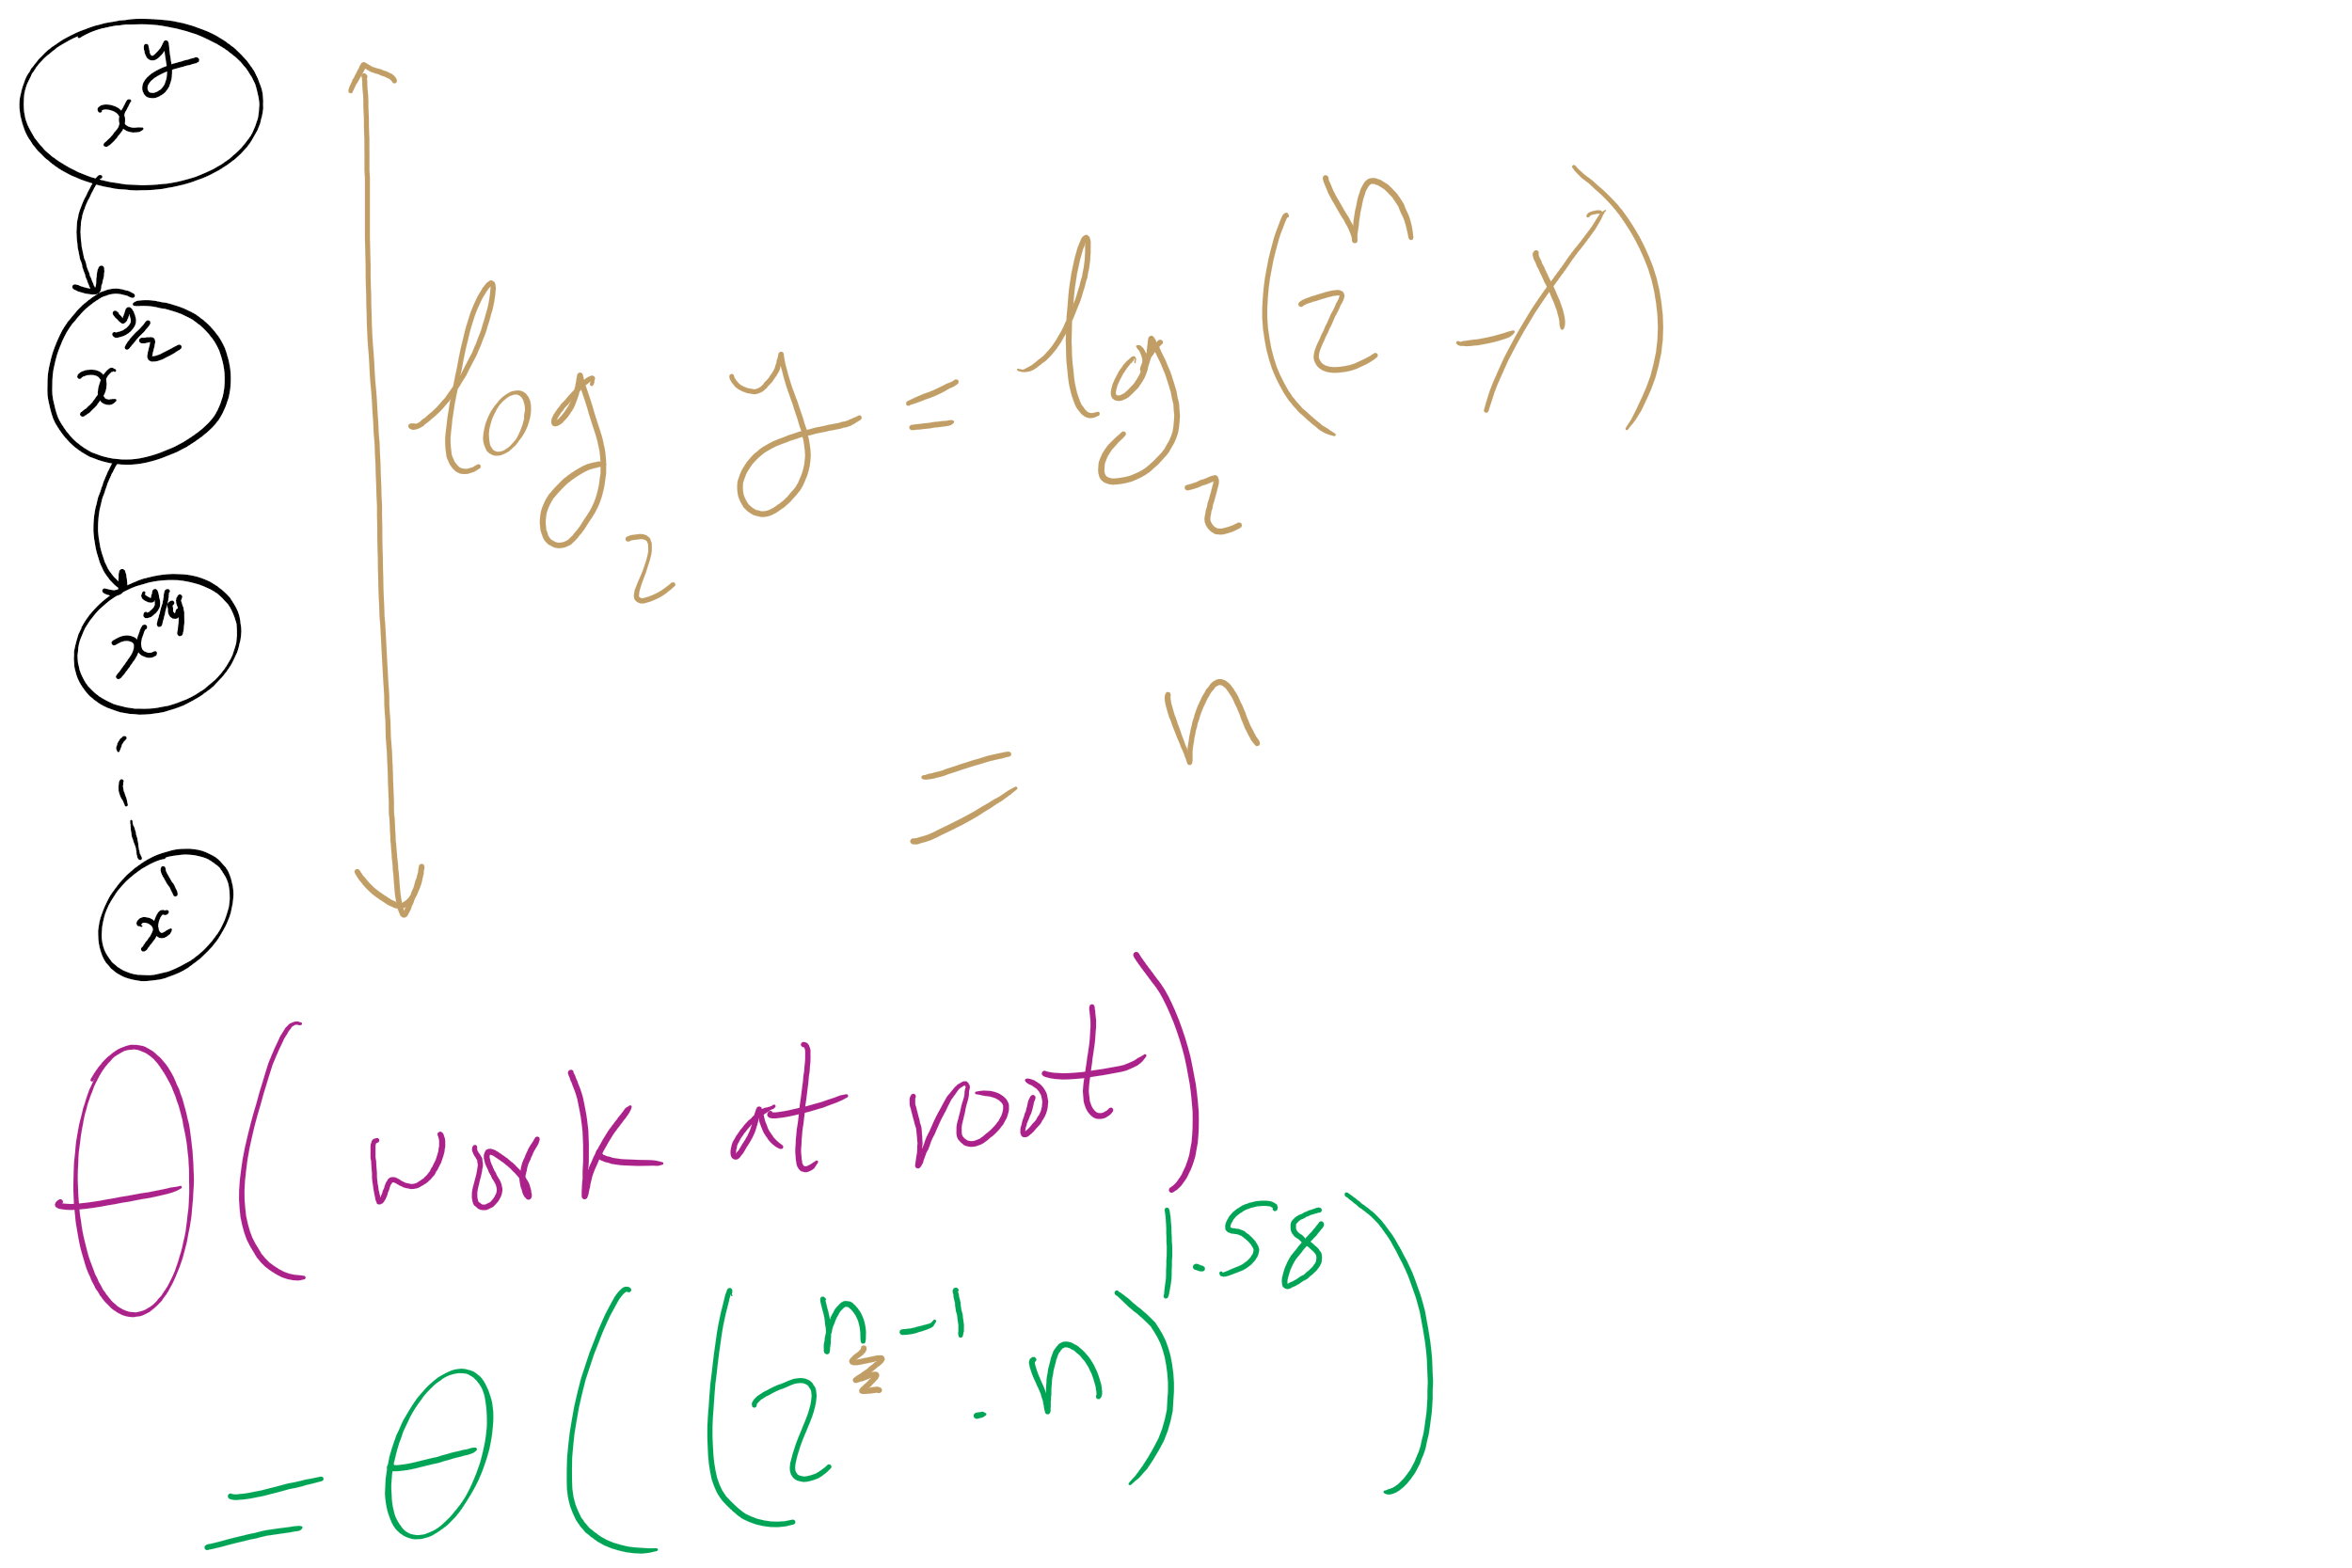 x^y
x^{y/2}
x^{y/4}
x^1
log_2 y = log_2 (2^n - 1)
= n
θ(work at root)
= θ((2^{n-1} · n)^{1.58})